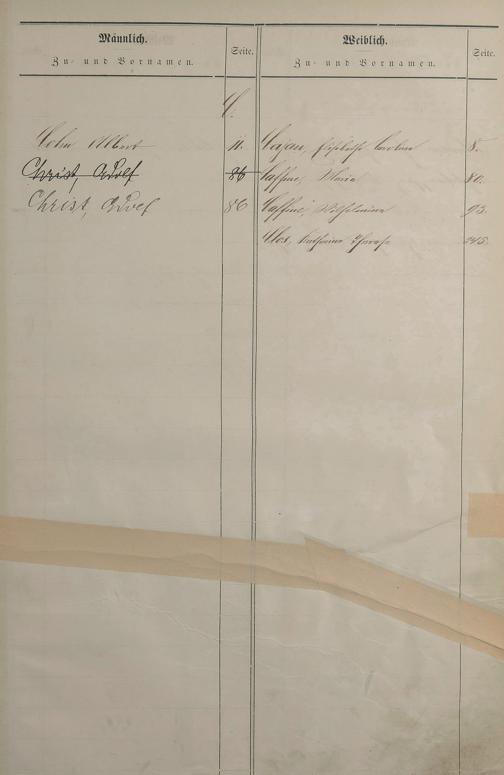 Männlich.
Zu- und Vornamen.
Seite.
Weiblich.
Zu- und Vornamen.
Seite.
C.
Cohn Albert 11.
Christ, Adolf 86
Christ, Adolf 86
Cajau, Elisabethe Caroline 8.
Caffine, Maria 80.
Caffine, Wilhelmine 93.
Clos, Katharina Therese 245.